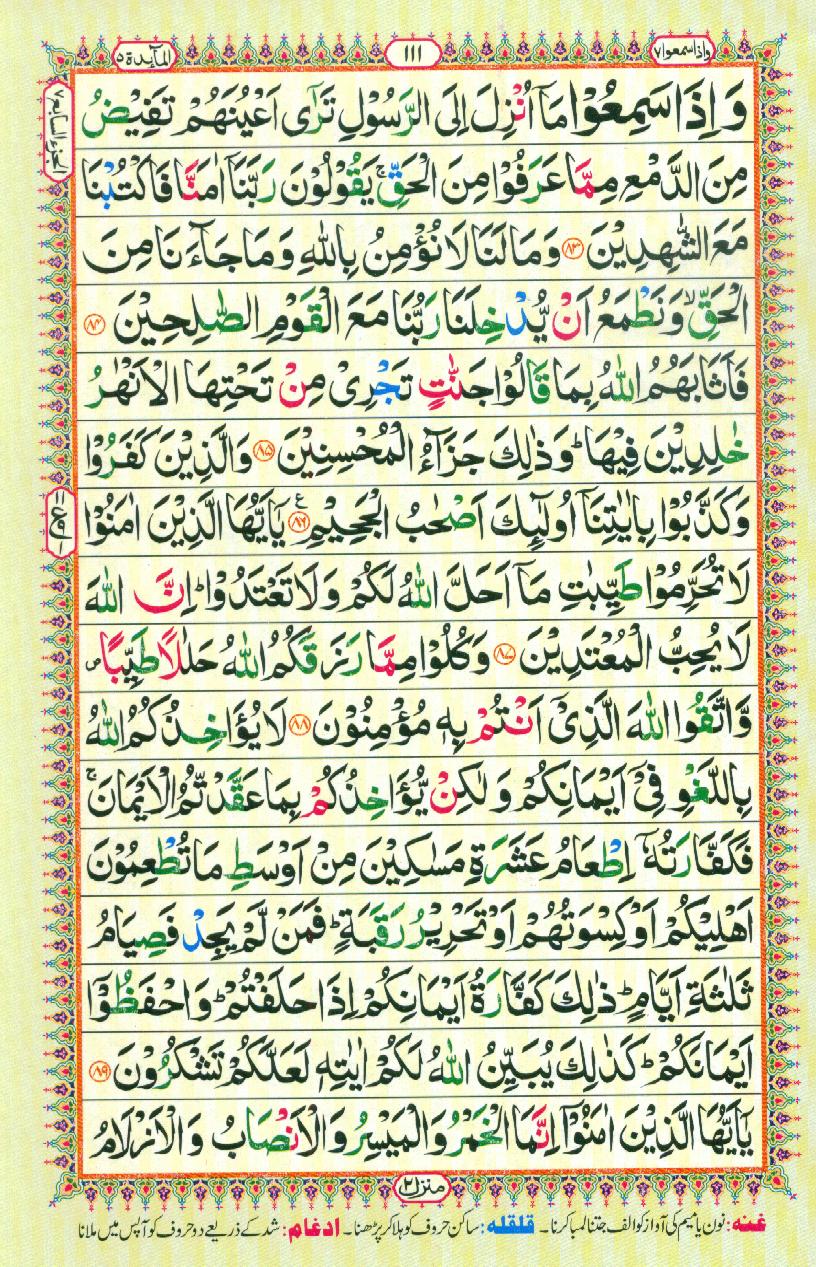 واذاسمعوا٧
١١١
المآىدة٥
وَ اِذَا سَمِعُوْا مَاۤ اُنْزِلَ اِلَى الرَّسُوْلِ تَرٰۤى اَعْیُنَهُمْ تَفِیْضُ
مِنَ الدَّمْعِ مِمَّا عَرَفُوْا مِنَ الْحَقِّ ۚ یَقُوْلُوْنَ رَبَّنَاۤ اٰمَنَّا فَاكْتُبْنَا
مَعَ الشّٰهِدِیْنَ ﴿۸۳﴾ وَ مَا لَنَا لَا نُؤْمِنُ بِاللّٰهِ وَ مَا جَآءَنَا مِنَ
الْحَقِّ ۙ وَ نَطْمَعُ اَنْ یُّدْخِلَنَا رَبُّنَا مَعَ الْقَوْمِ الصّٰلِحِیْنَ ﴿۸۴﴾
فَاَثَابَهُمُ اللّٰهُ بِمَا قَالُوْا جَنّٰتٍ تَجْرِیْ مِنْ تَحْتِهَا الْاَنْهٰرُ
خٰلِدِیْنَ فِیْهَا ؕ وَ ذٰلِكَ جَزَآءُ الْمُحْسِنِیْنَ ﴿۸۵﴾ وَ الَّذِیْنَ كَفَرُوْا
وَ كَذَّبُوْا بِاٰیٰتِنَاۤ اُولٰٓىِٕكَ اَصْحٰبُ الْجَحِیْمِ ﴿۸۶﴾ ع یٰۤاَیُّهَا الَّذِیْنَ اٰمَنُوْا
لَا تُحَرِّمُوْا طَیِّبٰتِ مَاۤ اَحَلَّ اللّٰهُ لَكُمْ وَ لَا تَعْتَدُوْا ؕ اِنَّ اللّٰهَ
لَا یُحِبُّ الْمُعْتَدِیْنَ ﴿۸۷﴾ وَ كُلُوْا مِمَّا رَزَقَكُمُ اللّٰهُ حَلٰلًا طَیِّبًا ۪
وَّ اتَّقُوا اللّٰهَ الَّذِیْۤ اَنْتُمْ بِهٖ مُؤْمِنُوْنَ ﴿۸۸﴾ لَا یُؤَاخِذُكُمُ اللّٰهُ
بِاللَّغْوِ فِیْۤ اَیْمَانِكُمْ وَ لٰكِنْ یُّؤَاخِذُكُمْ بِمَا عَقَّدْتُّمُ الْاَیْمَانَ ۚ
فَكَفَّارَتُهٗۤ اِطْعَامُ عَشَرَةِ مَسٰكِیْنَ مِنْ اَوْسَطِ مَا تُطْعِمُوْنَ
اَهْلِیْكُمْ اَوْ كِسْوَتُهُمْ اَوْ تَحْرِیْرُ رَقَبَةٍ ؕ فَمَنْ لَّمْ یَجِدْ فَصِیَامُ
ثَلٰثَةِ اَیَّامٍ ؕ ذٰلِكَ كَفَّارَةُ اَیْمَانِكُمْ اِذَا حَلَفْتُمْ ؕ وَ احْفَظُوْۤا
اَیْمَانَكُمْ ؕ كَذٰلِكَ یُبَیِّنُ اللّٰهُ لَكُمْ اٰیٰتِهٖ لَعَلَّكُمْ تَشْكُرُوْنَ ﴿۸۹﴾
یٰۤاَیُّهَا الَّذِیْنَ اٰمَنُوْۤا اِنَّمَا الْخَمْرُ وَ الْمَیْسِرُ وَ الْاَنْصَابُ وَ الْاَزْلَامُ
الجزء السابع٧
منزل٢
غنه: نون یا میم کی آواز کو الف جتنا لمبا کرنا۔ قلقله: ساکن حروف کو ہلا کر پڑھنا۔ ادغام: شد کے ذریعے دو حروف کو آپس میں ملانا